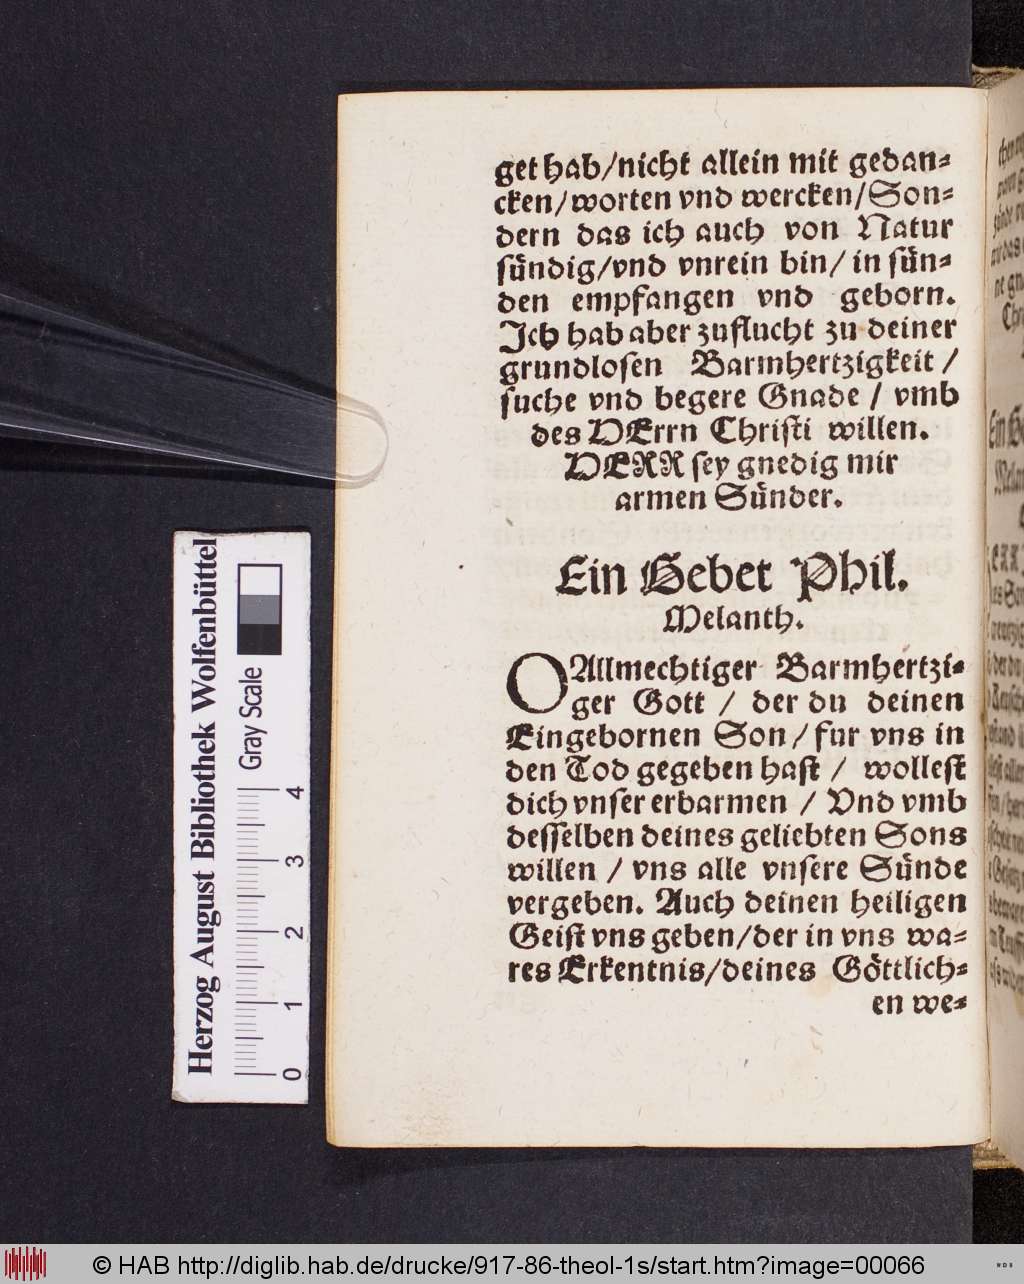 get hab/nicht allein mit gedan⸗
cken/worten vnd wercken/Son⸗
dern das ich auch von Natur
suͤndig/vnd vnrein bin/ in suͤn⸗
den empfangen vnd geborn.
Ich hab aber zuflucht zu deiner
grundlosen Barmhertzigkeit /
suche vnd begere Gnade / vmb
des HErrn Christi willen.
HERR sey gnedig mir
armen Suͤnder.
Ein Gebet Phil.
Melanth.
O Allmechtiger Barmhertzi⸗
ger Gott / der du deinen
Eingebornen Son/ fur vns in
den Tod gegeben hast / wollest
dich vnser erbarmen / Vnd vmb
desselben deines geliebten Sons
willen / vns alle vnsere Suͤnde
vergeben. Auch deinen heiligen
Geist vns geben/der in vns wa⸗
res Erkentnis/deines Goͤttlich⸗
en we⸗
Herzog August Bibliothek Wolfenbüttel
Gray Scale
0 1 2 3 4
© HAB http://diglib.hab.de/drucke/917-86-theol-1s/start.htm?image=00066